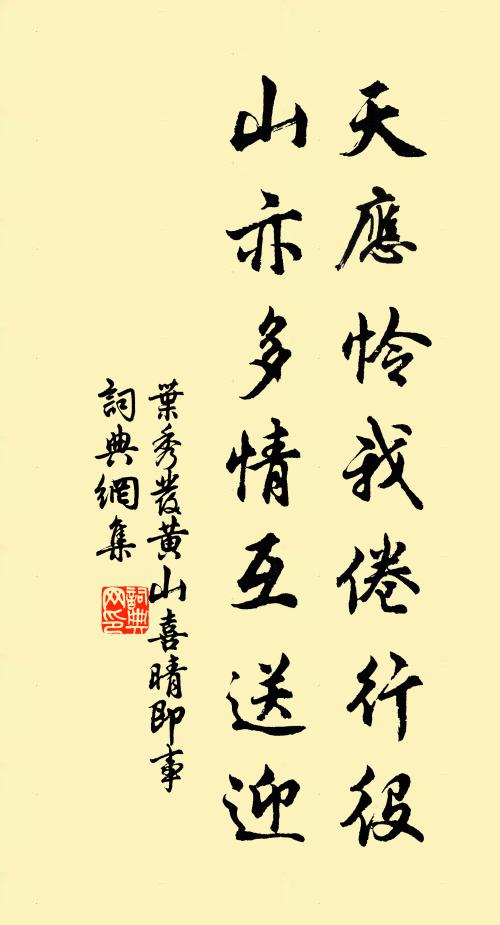 天應怜我倦行役
山亦多情互送迎
葉秀發黃山喜晴即事
詞典網集
詞典网印